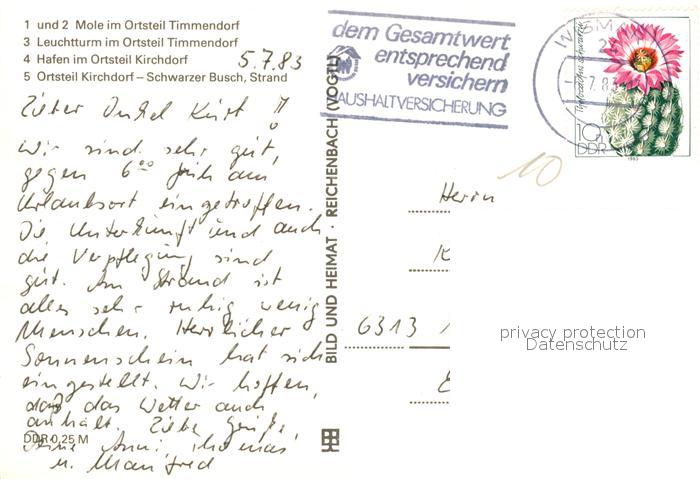 1 und 2 Mole im Ortsteil Timmendorf
3 Leuchtturm im Ortsteil Timmendorf
4 Hafen im Ortsteil Kirchdorf
5 Ortsteil Kirchdorf – Schwarzer Busch, Strand
5.7.83
Lieber Onkel Kurt!
Wir sind sehr gut,
gegen 6⁰⁰ früh am
Urlaubsort eingetroffen.
Die Unterkunft und auch
die Verpflegung sind
gut. Am Strand ist
alles sehr ruhig wenig
Menschen. Herrlicher
Sonnenschein hat sich
eingestellt. Wir hoffen,
daß das Wetter auch
anhält. Liebe Grüße,
Deine Anni, Thomas
u. Manfred
DDR 0,25 M
BILD UND HEIMAT · REICHENBACH (VOGTL)
dem Gesamtwert
entsprechend
versichern
HAUSHALTVERSICHERUNG
WISMAR
10
DDR
1983
10
Herrn
K
6313
privacy protection
Datenschutz